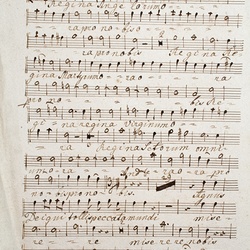 Regina Ange lorumo
rapronobis
rapronobis Regina
gina Martirumo ra o ra
pro no bis Re
gi na regina Virginumo
ra Regina Sctorum omni
um o ra ora pro
nobisprono bis. Agnus
Dei qui tollispeccatamundi mise
re re misererenobis